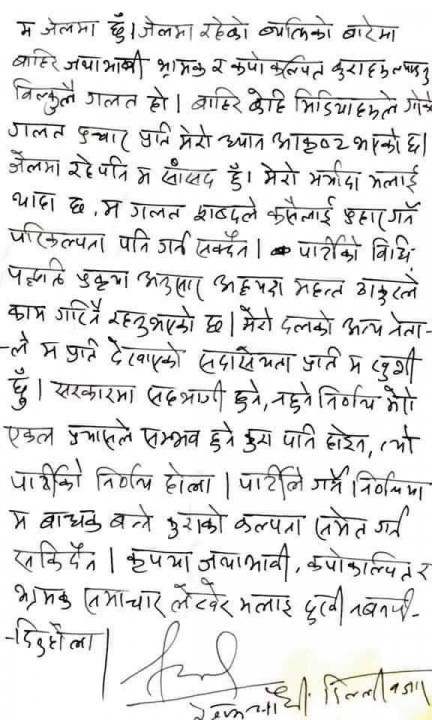 म जेलमा छुँ। जेलमा रहेको ब्यक्तिको बारेमा
बाहिर जथाभाबी भ्रामक र कपोकल्पित कुराहरू
बिल्कुलै गलत हो। बाहिर केहि मिडियाहरूले गरेको
गलत प्रचार प्रति मेरो ध्यान आकृष्ट भएको छ।
जेलमा रहेपनि म सांसद हुँ। मेरो मर्यादा मलाई
थाहा छ, म गलत शब्दले कसैलाई प्रहार गर्ने
परिकल्पना पनि गर्न सक्दैन। पार्टीको बिधि
पद्धति प्रकृया अनुसार अध्यक्ष महन्त ठाकुरले
काम गरिनै रहनुभएको छ। मेरो दलको अन्य नेता-
ले म प्रति देखाएको सदासयता प्रति म खुशी
छुँ। सरकारमा सहभागी हुने, नहुने निर्णय मेरो
एकल प्रयासले सम्भव हुने कुरा पनि होइन, त्यो
पार्टीको निर्णय होला। पार्टीले गर्ने निर्णयमा
म बाधक बन्ने कुराको कल्पना समेत गर्न
सकिदैन। कृपया जथाभावी, कपोकल्पित र
भ्रामक समाचार लेखेर मलाई दुखी नबनाई-
-दिनुहोला।
डिल्लीबजार